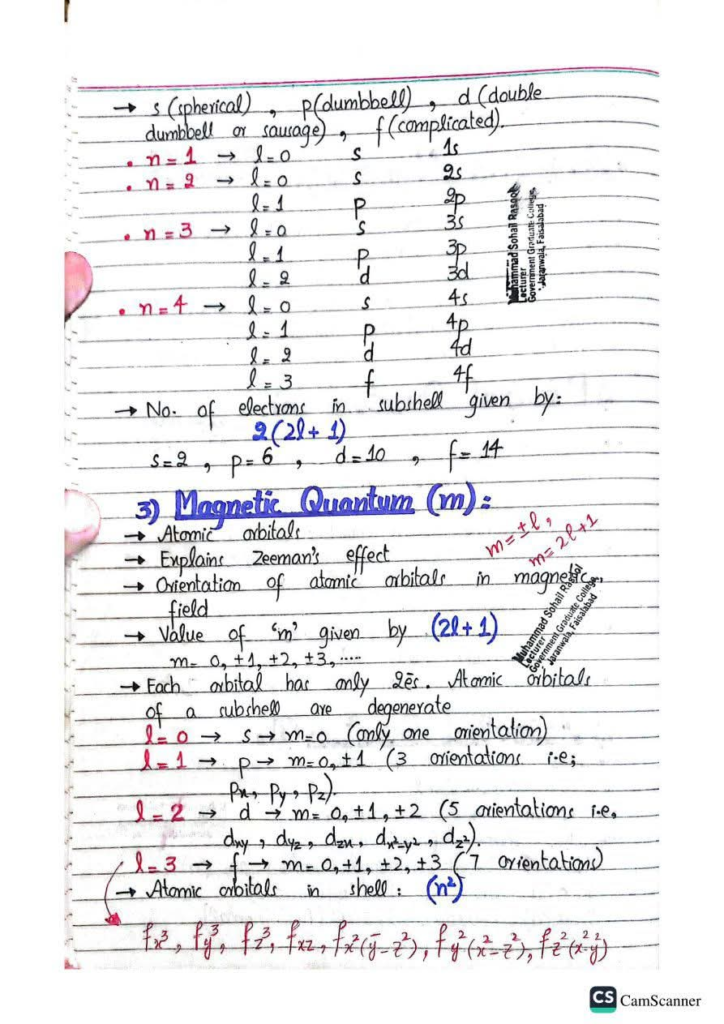 → s (spherical) , p(dumbbell) , d (double
dumbbell or sausage) , f (complicated).
• n = 1 → l = 0 s 1s
• n = 2 → l = 0 s 2s
l = 1 p 2p
• n = 3 → l = 0 s 3s
l = 1 p 3p
l = 2 d 3d
• n = 4 → l = 0 s 4s
l = 1 p 4p
l = 2 d 4d
l = 3 f 4f
Muhammad Sohail Rasool
Lecturer
Government Graduate College,
Jaranwala, Faisalabad
→ No. of electrons in subshell given by:
2(2l + 1)
s = 2 , p = 6 , d = 10 , f = 14
3) Magnetic Quantum (m) :
→ Atomic orbitals
→ Explains Zeeman's effect
m = ±l ,
m = 2l + 1
→ Orientation of atomic orbitals in magnetic
field
→ Value of 'm' given by (2l + 1)
m = 0, ±1, ±2, ±3, .....
Muhammad Sohail Rasool
Lecturer
Government Graduate College,
Jaranwala, Faisalabad
→ Each orbital has only 2ēs. Atomic orbitals
of a subshell are degenerate
l = 0 → s → m = 0 (only one orientation)
l = 1 → p → m = 0, ±1 (3 orientations i.e;
Px, Py, Pz).
l = 2 → d → m = 0, ±1, ±2 (5 orientations i.e,
dxy , dyz , dzx , dx²-y² , dz²).
l = 3 → f → m = 0, ±1, ±2, ±3 (7 orientations)
→ Atomic orbitals in shell : (n²)
fx³, fy³, fz³, fxz, fx²(y²-z²), fy²(x²-z²), fz²(x²-y²)
CS CamScanner